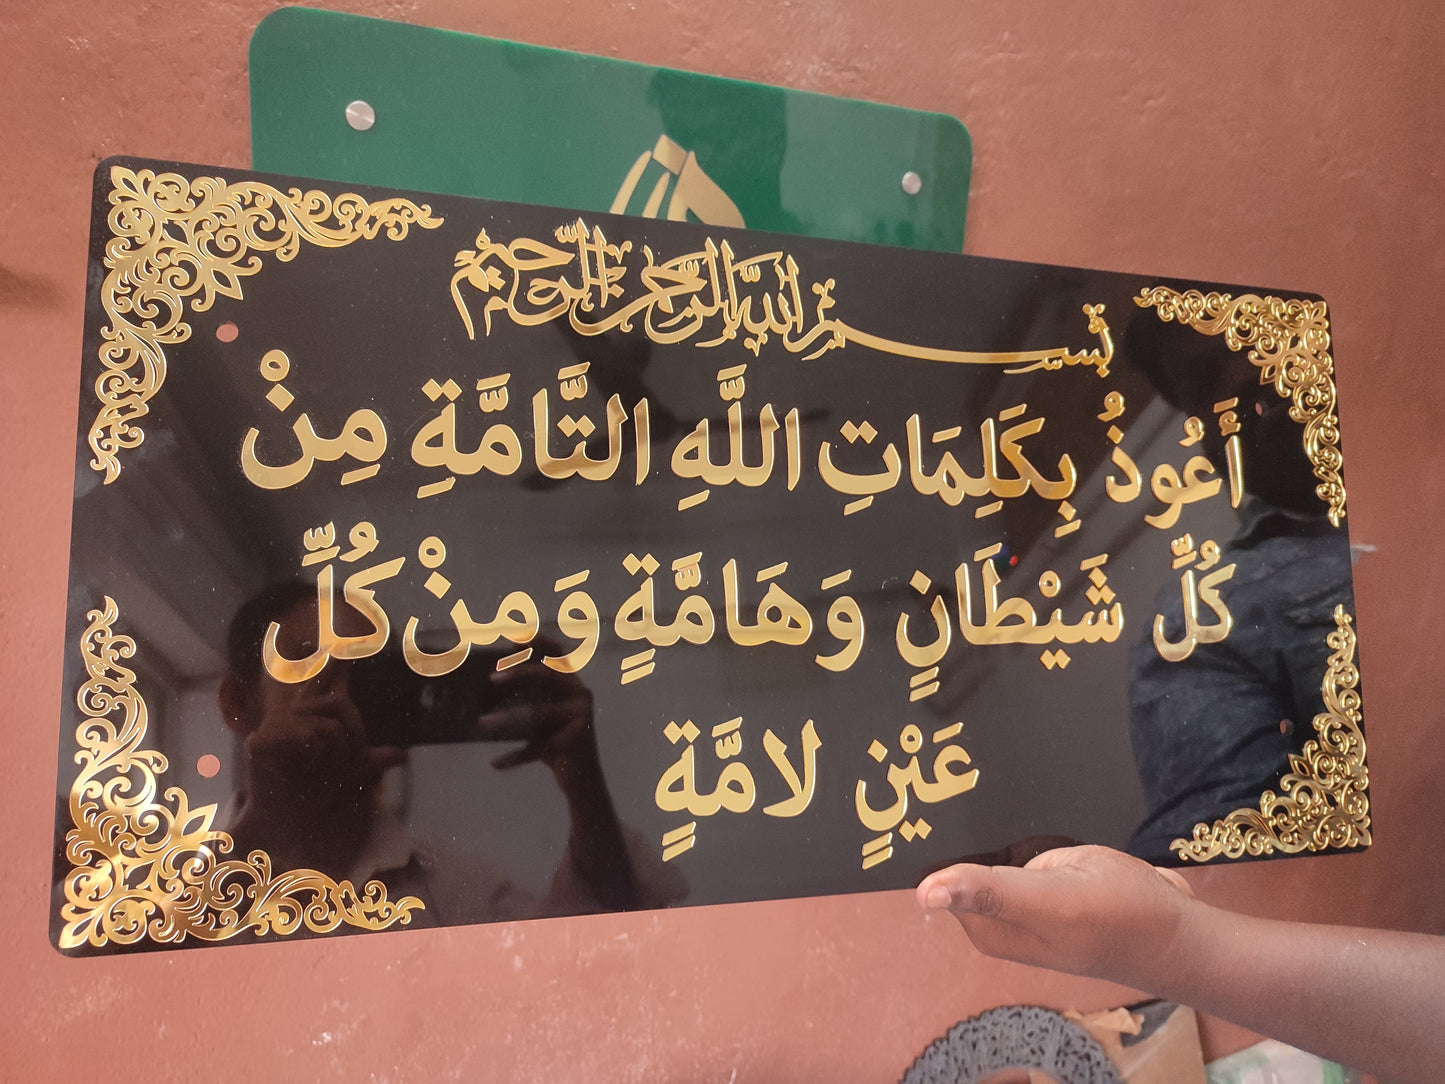 بسم الله الرحمن الرحيم
أَعُوذُ بِكَلِمَاتِ اللَّهِ التَّامَّةِ مِنْ
كُلِّ شَيْطَانٍ وَهَامَّةٍ وَمِنْ كُلِّ
عَيْنٍ لامَّةٍ